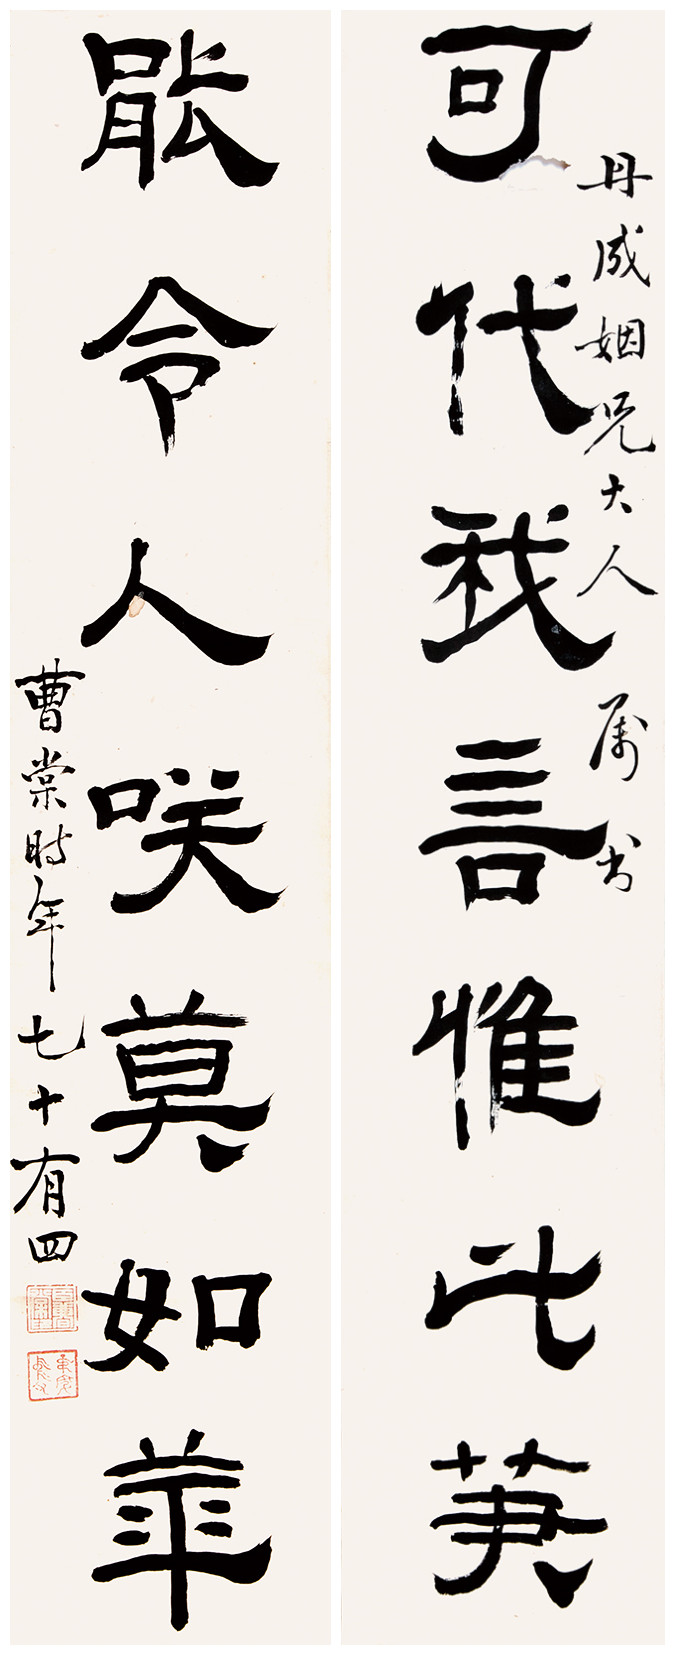 丹成姻兄大人属书
可代我言惟此
能令人咲莫如華
曹棠时年七十有四